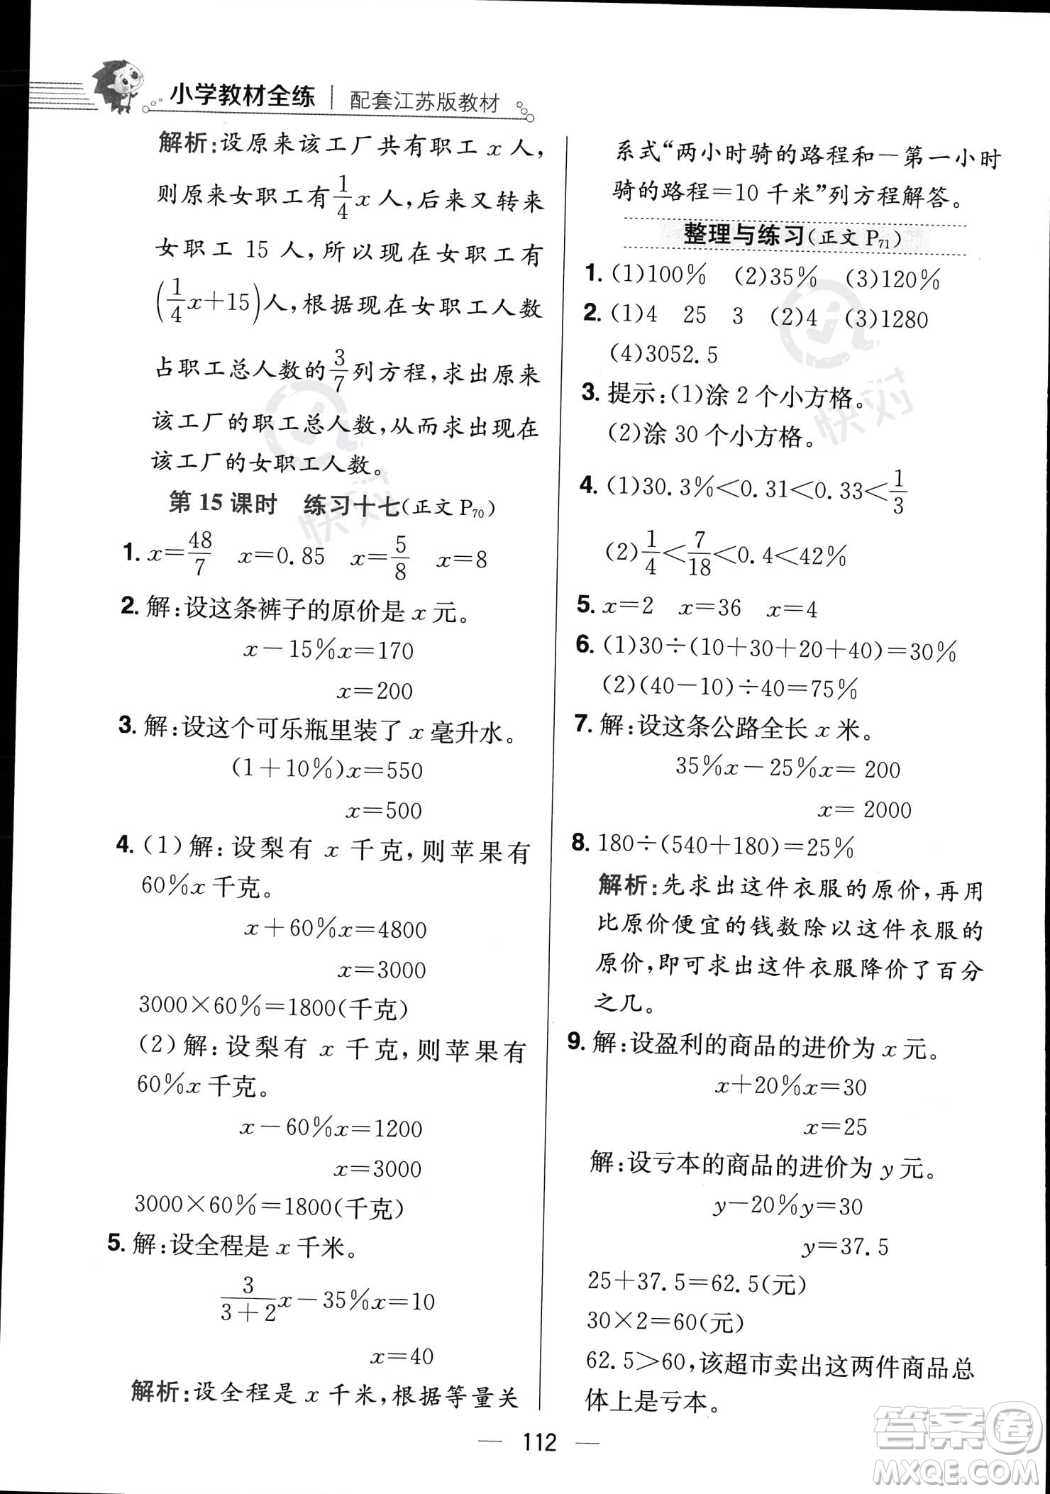 小学教材全练 | 配套江苏版教材
解析:设原来该工厂共有职工 x 人,
则原来女职工有 1/4 x 人,后来又转来
女职工 15 人,所以现在女职工有
(1/4 x+15)人,根据现在女职工人数
占职工总人数的 3/7 列方程,求出原来
该工厂的职工总人数,从而求出现在
该工厂的女职工人数。
第 15 课时 练习十七(正文 P70)
1. x=48/7 x=0.85 x=5/8 x=8
2. 解:设这条裤子的原价是 x 元。
x-15%x=170
x=200
3. 解:设这个可乐瓶里装了 x 毫升水。
(1+10%)x=550
x=500
4. (1)解:设梨有 x 千克,则苹果有
60%x 千克。
x+60%x=4800
x=3000
3000×60%=1800(千克)
(2)解:设梨有 x 千克,则苹果有
60%x 千克。
x-60%x=1200
x=3000
3000×60%=1800(千克)
5. 解:设全程是 x 千米。
3/(3+2) x-35%x=10
x=40
解析:设全程是 x 千米,根据等量关
系式“两小时骑的路程和-第一小时
骑的路程=10 千米”列方程解答。
整理与练习(正文 P71)
1. (1)100% (2)35% (3)120%
2. (1)4 25 3 (2)4 (3)1280
(4)3052.5
3. 提示:(1)涂 2 个小方格。
(2)涂 30 个小方格。
4. (1)30.3%<0.31<0.33<1/3
(2)1/4<7/18<0.4<42%
5. x=2 x=36 x=4
6. (1)30÷(10+30+20+40)=30%
(2)(40-10)÷40=75%
7. 解:设这条公路全长 x 米。
35%x-25%x=200
x=2000
8. 180÷(540+180)=25%
解析:先求出这件衣服的原价,再用
比原价便宜的钱数除以这件衣服的
原价,即可求出这件衣服降价了百分
之几。
9. 解:设盈利的商品的进价为 x 元。
x+20%x=30
x=25
解:设亏本的商品的进价为 y 元。
y-20%y=30
y=37.5
25+37.5=62.5(元)
30×2=60(元)
62.5>60,该超市卖出这两件商品总
体上是亏本。
112
快对
快对
答案圈
MXQE.COM